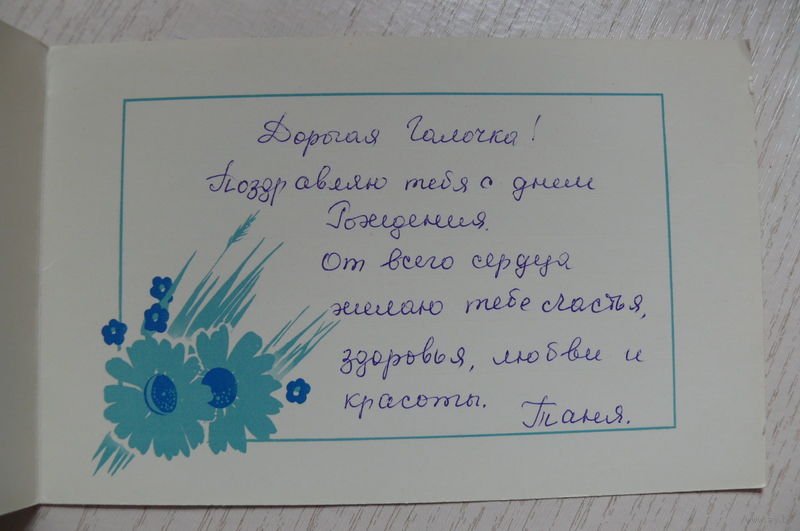 Дорогая Галочка!
Поздравляю тебя с днем
Рождения.
От всего сердца
желаю тебе счастья,
здоровья, любви и
красоты.
Таня.